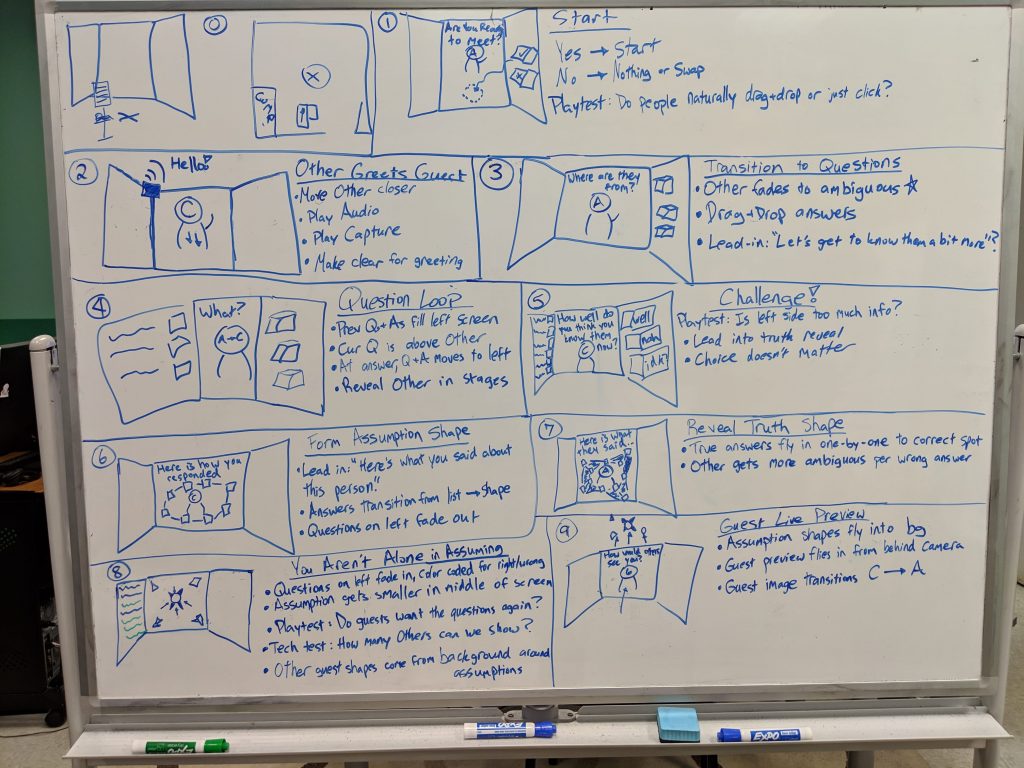 0
1
Are You Ready
to Meet?
A
Start
Yes → Start
No → Nothing or Swap
Playtest: Do people naturally drag+drop or just click?
2
Hello!
C
Other Greets Guest
• Move Other closer
• Play Audio
• Play Capture
• Make clear for greeting
3
Where are they
from?
A
Transition to Questions
• Other fades to ambiguous
• Drag+Drop answers
• Lead-in: "Let's get to know them a bit more"?
4
What?
A→C
Question Loop
• Prev Qs+As fill left screen
• Cur Q is above Other
• At answer, Q+A moves to left
• Reveal Other in stages
5
How well do
you think you
know them
now?
C
well
idk
Challenge!
Playtest: Is left side too much info?
• Lead into truth reveal
• Choice doesn't matter
6
Here is how you
responded
C
Form Assumption Shape
• Lead in: "Here's what you said about
this person."
• Answers transition from list → shape
• Questions on left fade out
7
Here is what
they said...
A
Reveal Truth Shape
• True answers fly in one-by-one to correct spot
• Other gets more ambiguous per wrong answer
8
You Aren't Alone in Assuming
• Questions on left fade in, color coded for right/wrong
• Assumption gets smaller in middle of screen
• Playtest: Do guests want the questions again?
• Tech test: How many Others can we show?
• Other guest shapes come from background around
assumptions
9
How would others
see you?
Guest Live Preview
• Assumption shapes fly into bg
• Guest preview flies in from behind Camera
• Guest image transitions C → A
EXPO